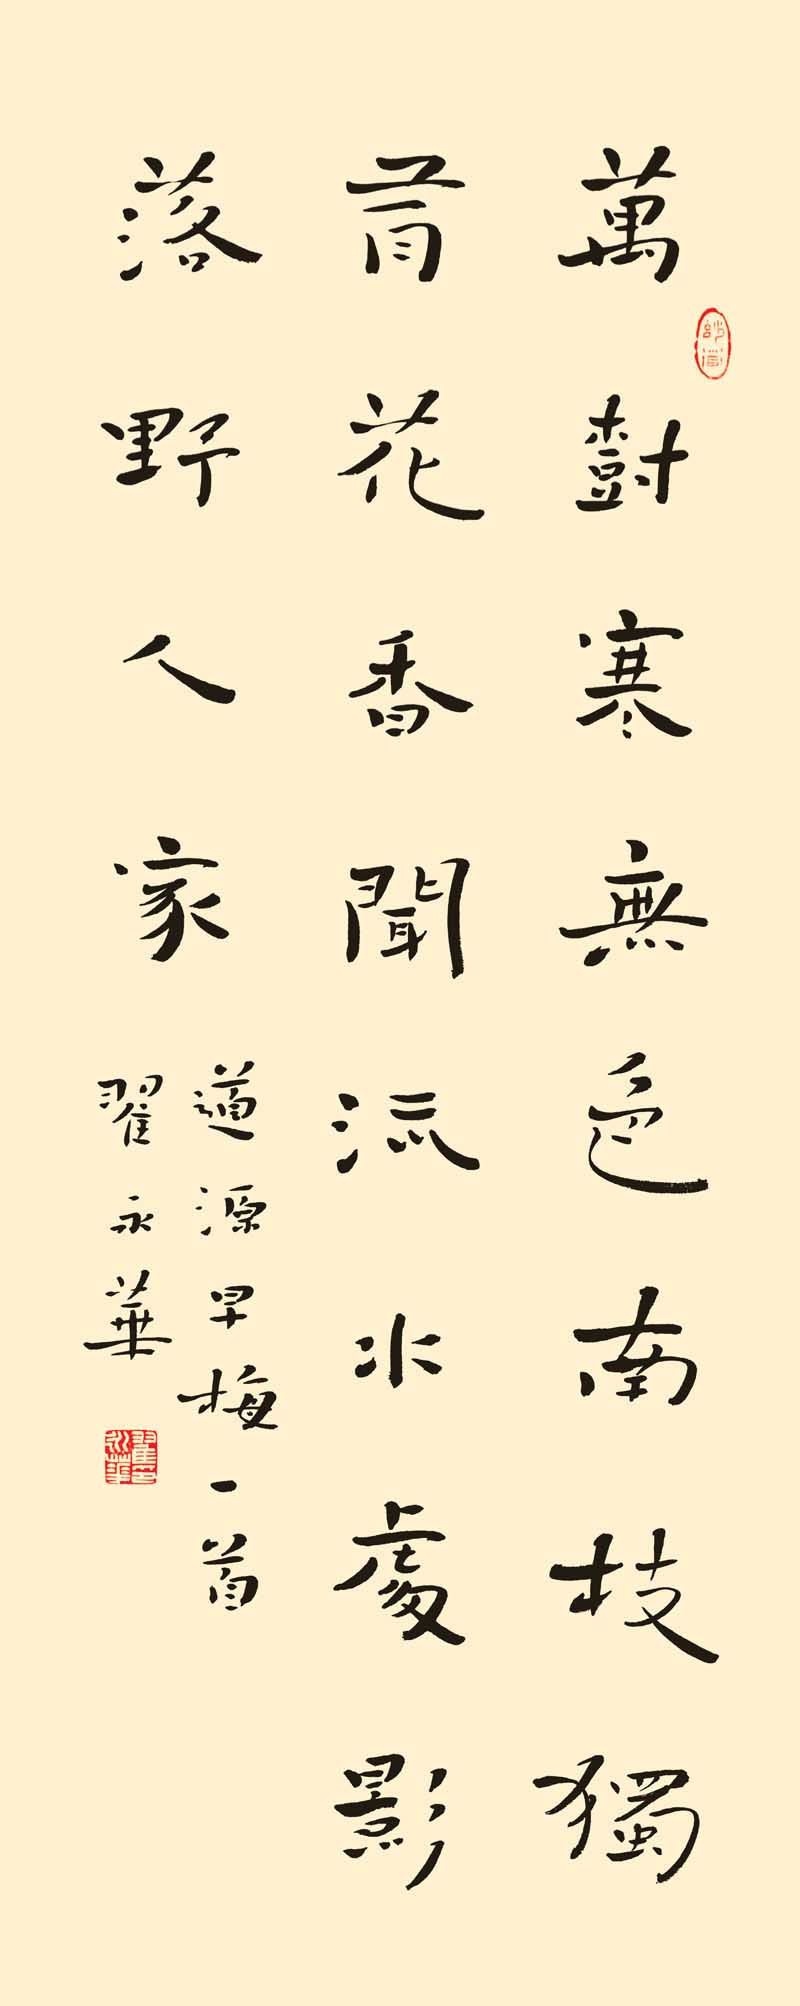 萬樹寒無色南枝獨
有花香聞流水處影
落野人家
道源早梅一首
翟永華